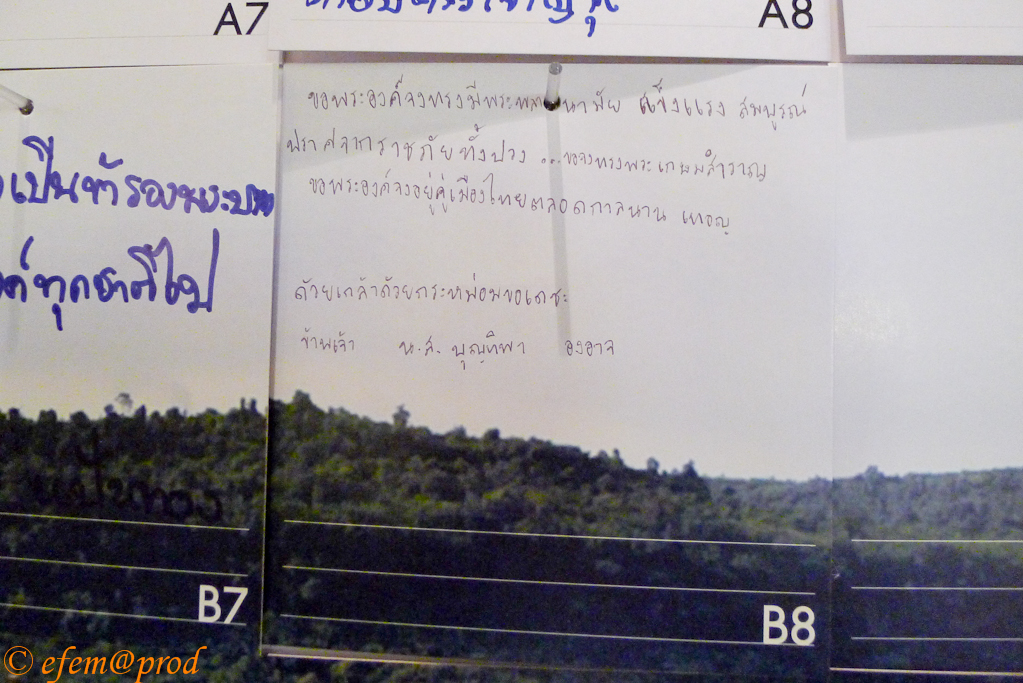 A7
A8
ขอพระองค์จงทรงมีพระพลานามัย แข็งแรง สมบูรณ์
ปราศจากราชภัยทั้งปวง ...ขอจงทรงพระเกษมสำราญ
ขอพระองค์จงอยู่คู่เมืองไทยตลอดกาลนาน เทอญ
ด้วยเกล้าด้วยกระหม่อมขอเดชะ
ข้าพเจ้า น.ส. บุญทิพา องอาจ
เป็นข้ารองพระบาท
ทุกชาติไป
B7
B8
© efem@prod